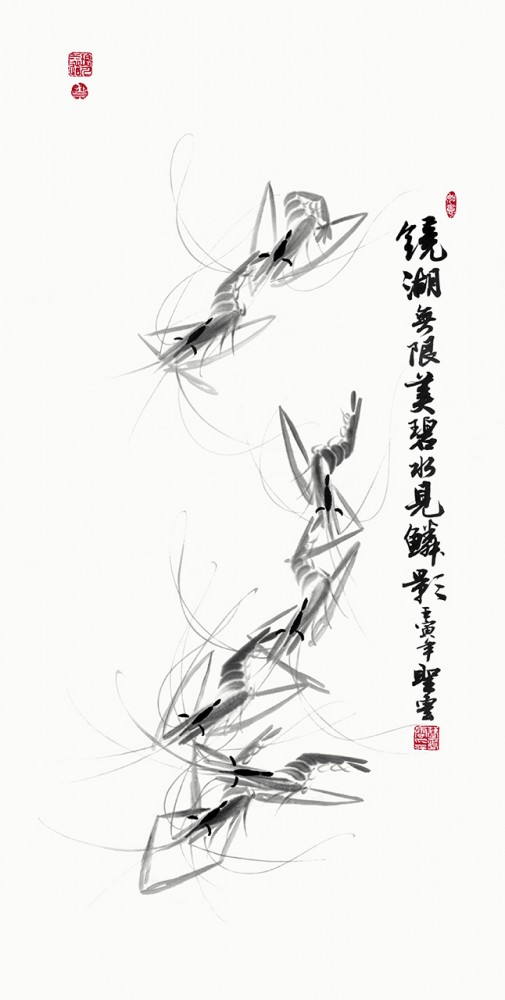 鏡湖無限美碧水見鱗影壬寅年聖雲